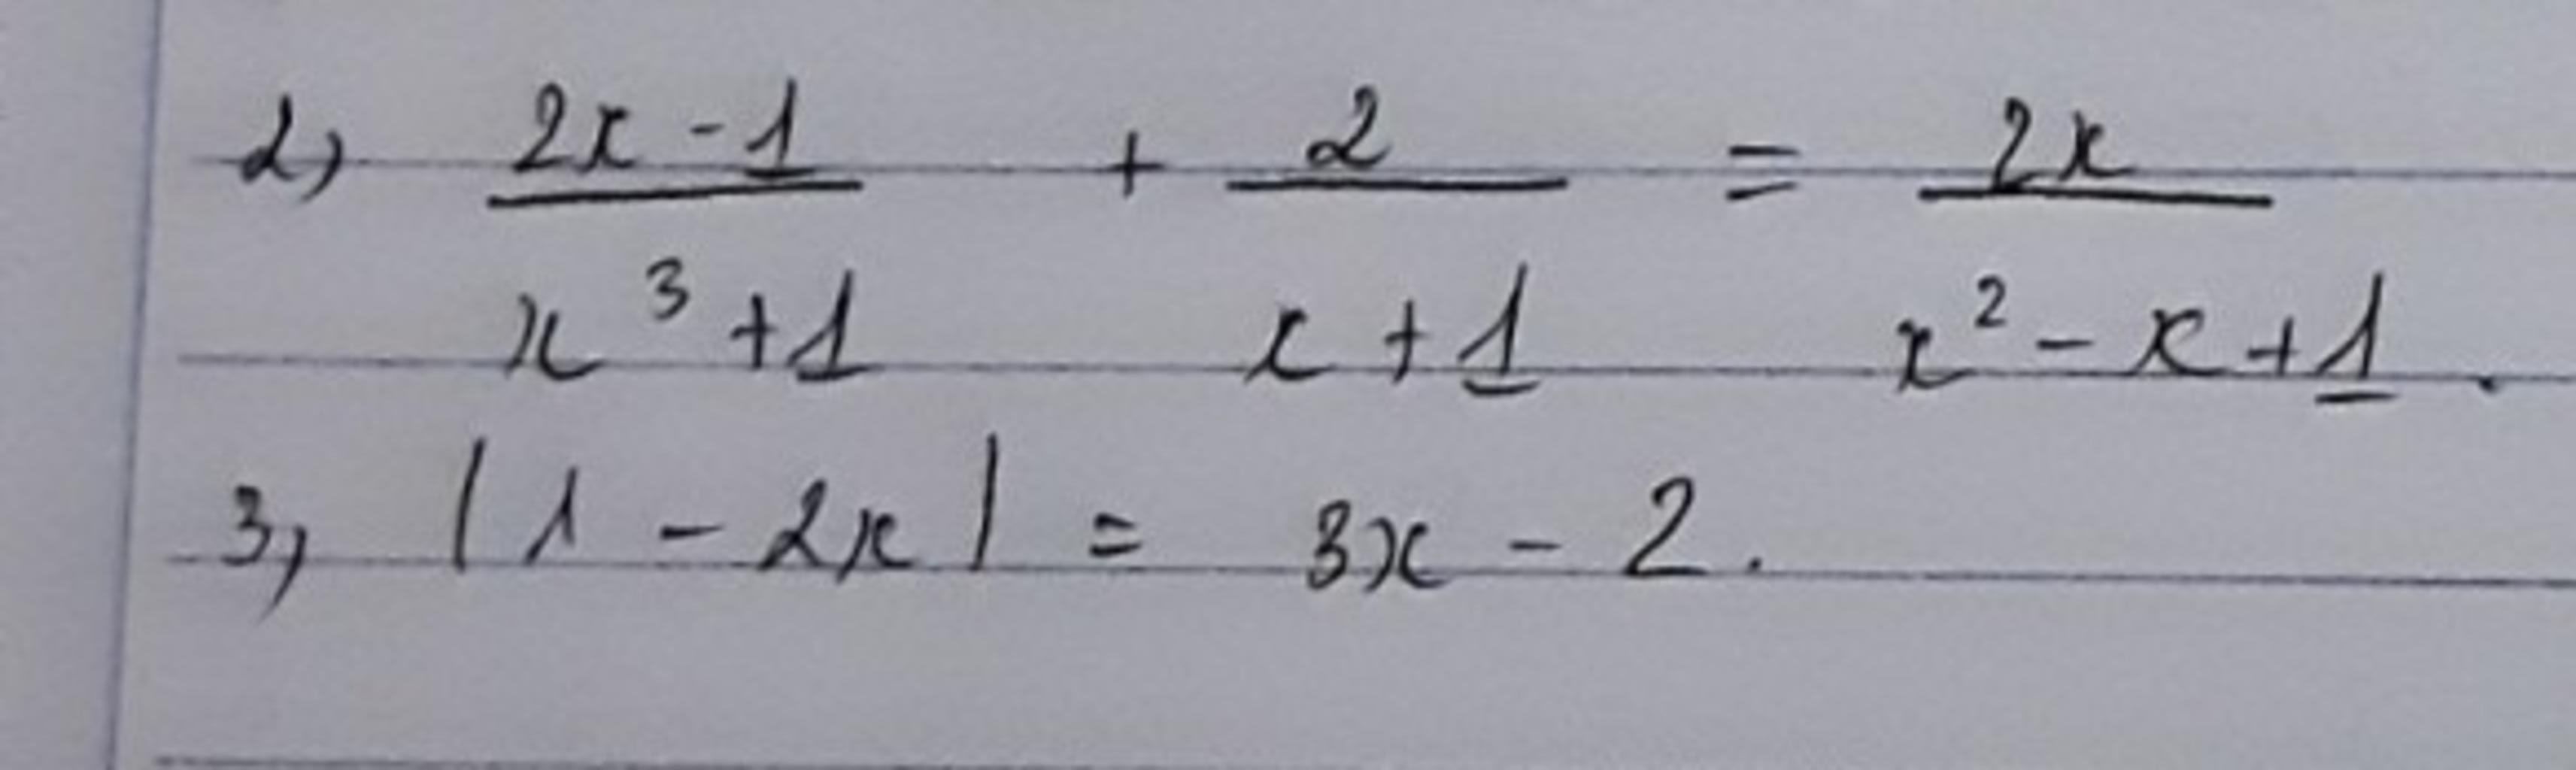 2, (2x - 1)/(x³ + 1) + 2/(x + 1) = 2x/(x² - x + 1).
3, |1 - 2x| = 3x - 2.